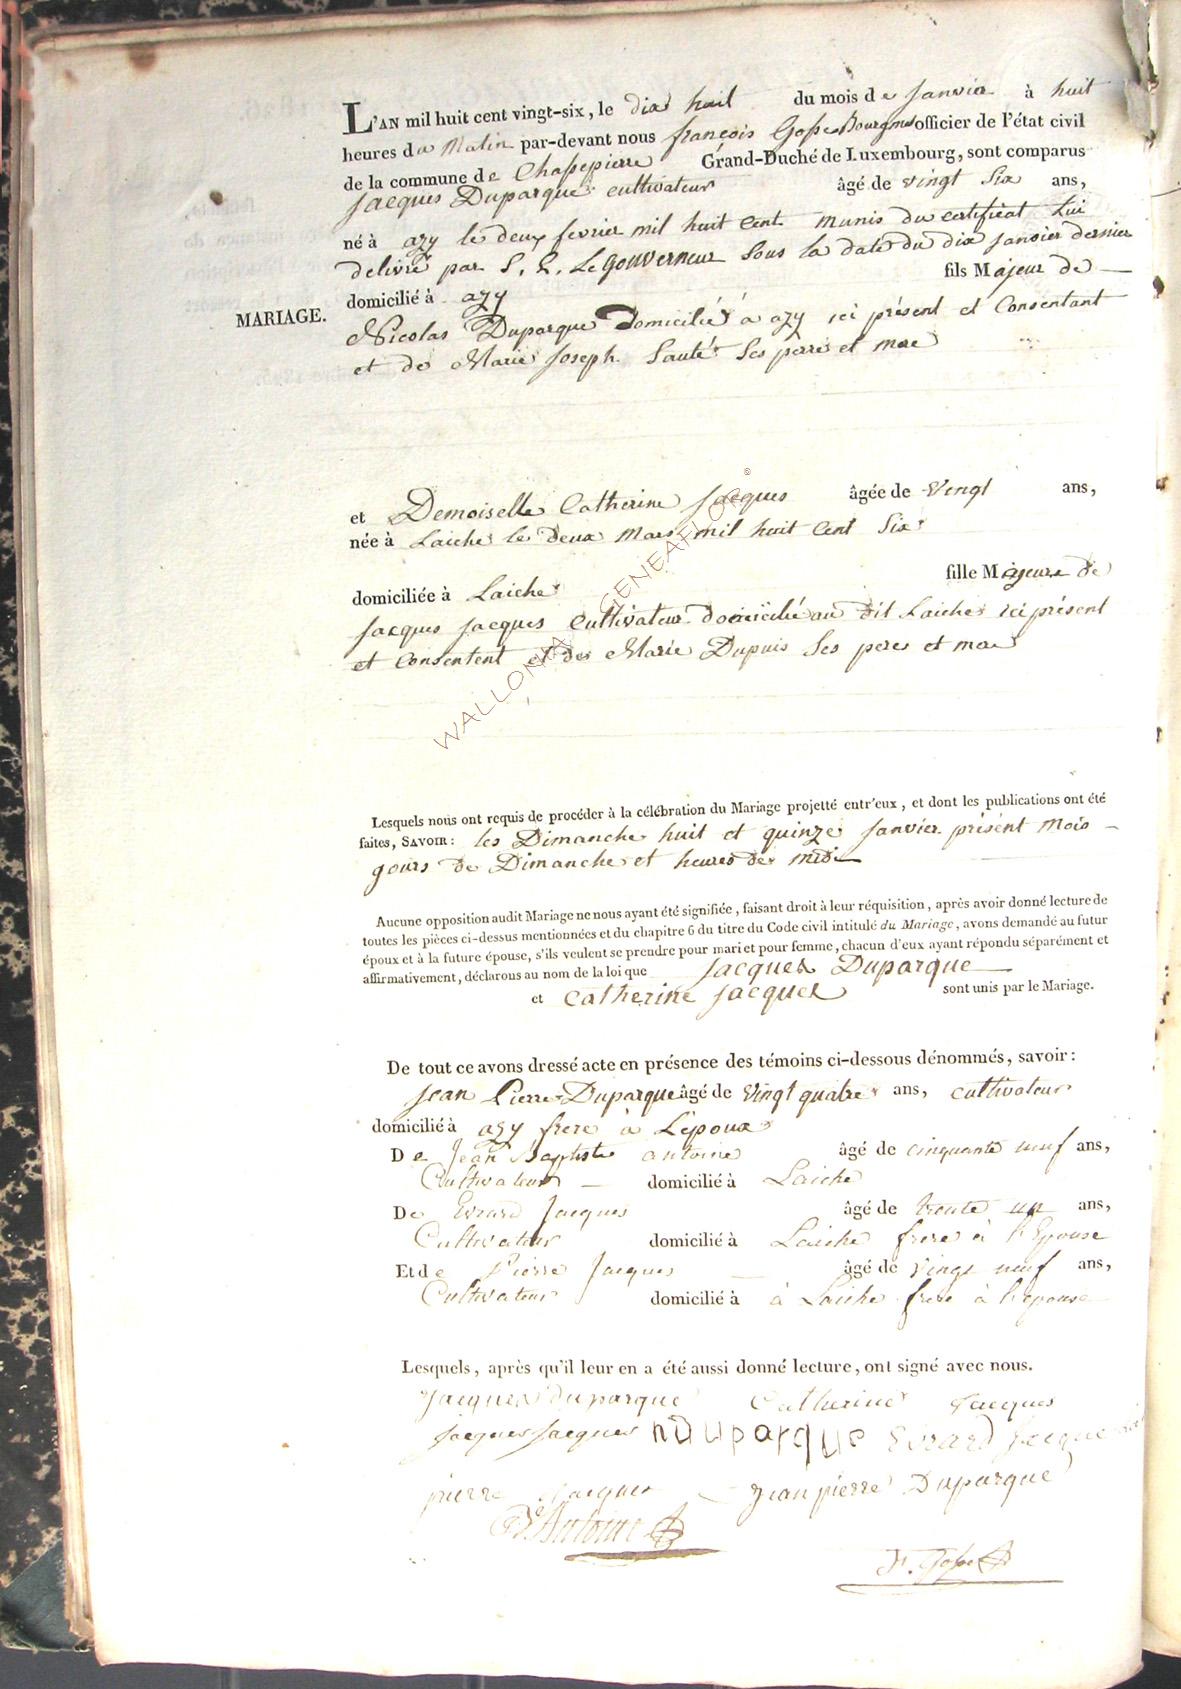 L'AN mil huit cent vingt-six, le dix huit du mois de Janvier à huit
heures du Matin par-devant nous françois Gosse Bourgms officier de l'état civil
de la commune de Chassepierre Grand-Duché de Luxembourg, sont comparus
Jacques Duparque cultivateur âgé de vingt Six ans,
né à azy le deux fevrier mil huit Cent munis du certificat Lui
delivré par S. E. Le gouverneur Sous la date du dix Janvier dernier
domicilié à azy fils Majeur de
MARIAGE.
Nicolas Duparque Domicilié à azy ici présent et Consentant
et de Marie Joseph Sauté Ses perre et mere
et Demoiselle Catherine Jacques âgée de Vingt ans,
née à Laiche le deux Mars mil huit Cent Six
domiciliée à Laiche fille Majeure de
Jacques Jacques Cultivateur domicilié au dit Laiche ici présent
et Consentent et de Marie Dupuis Ses peres et mere
WALLONIA GENEAFLOR ©
Lesquels nous ont requis de procéder à la célébration du Mariage projetté entr'eux, et dont les publications ont été
faites, SAVOIR: les Dimanche huit et quinze Janvier présent Mois
jours de Dimanche et heures de midi
Aucune opposition audit Mariage ne nous ayant été signifiée, faisant droit à leur réquisition, après avoir donné lecture de
toutes les pièces ci-dessus mentionnées et du chapitre 6 du titre du Code civil intitulé du Mariage, avons demandé au futur
époux et à la future épouse, s'ils veulent se prendre pour mari et pour femme, chacun d'eux ayant répondu séparément et
affirmativement, déclarons au nom de la loi que Jacques Duparque
et Catherine Jacques sont unis par le Mariage.
De tout ce avons dressé acte en présence des témoins ci-dessous dénommés, savoir:
Jean Pierre Duparque âgé de Vingt quatre ans, cultivateur
domicilié à azy frere à L'époux
De Jean Baptiste antoine âgé de cinquante neuf ans,
Cultivateur domicilié à Laiche
De Evrard Jacques âgé de trente un ans,
Cultivateur domicilié à Laiche frere à l'Epouse
Et de Pierre Jacques âgé de vingt neuf ans,
Cultivateur domicilié à à Laiche frere à l'epouse
Lesquels, après qu'il leur en a été aussi donné lecture, ont signé avec nous.
Jacques duparque Catherine Jacques
Jacques Jacques nduparque Evrard Jacque
pierre Jacques Jean pierre Duparque
Antoine
F. Gosse